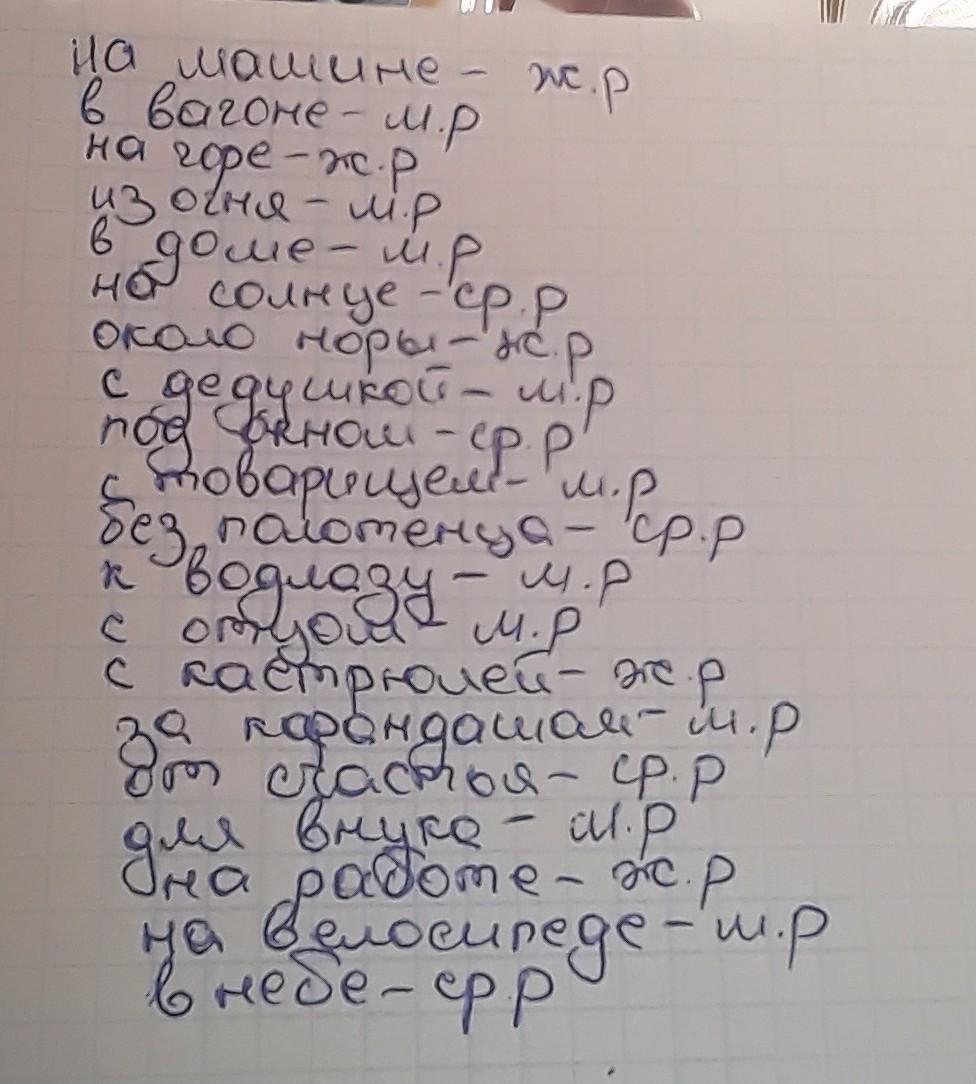 на машине - ж.р
в вагоне - м.р
на горе - ж.р
из огня - м.р
в доме - м.р
на солнце - ср.р
около норы - ж.р
с дедушкой - м.р
под окном - ср.р
с товарищем - м.р
без палотенца - ср.р
к водлазу - м.р
с отцом - м.р
с кастрюлей - ж.р
за карандашам - м.р
от счастья - ср.р
для внука - м.р
на работе - ж.р
на велосипеде - м.р
в небе - ср.р